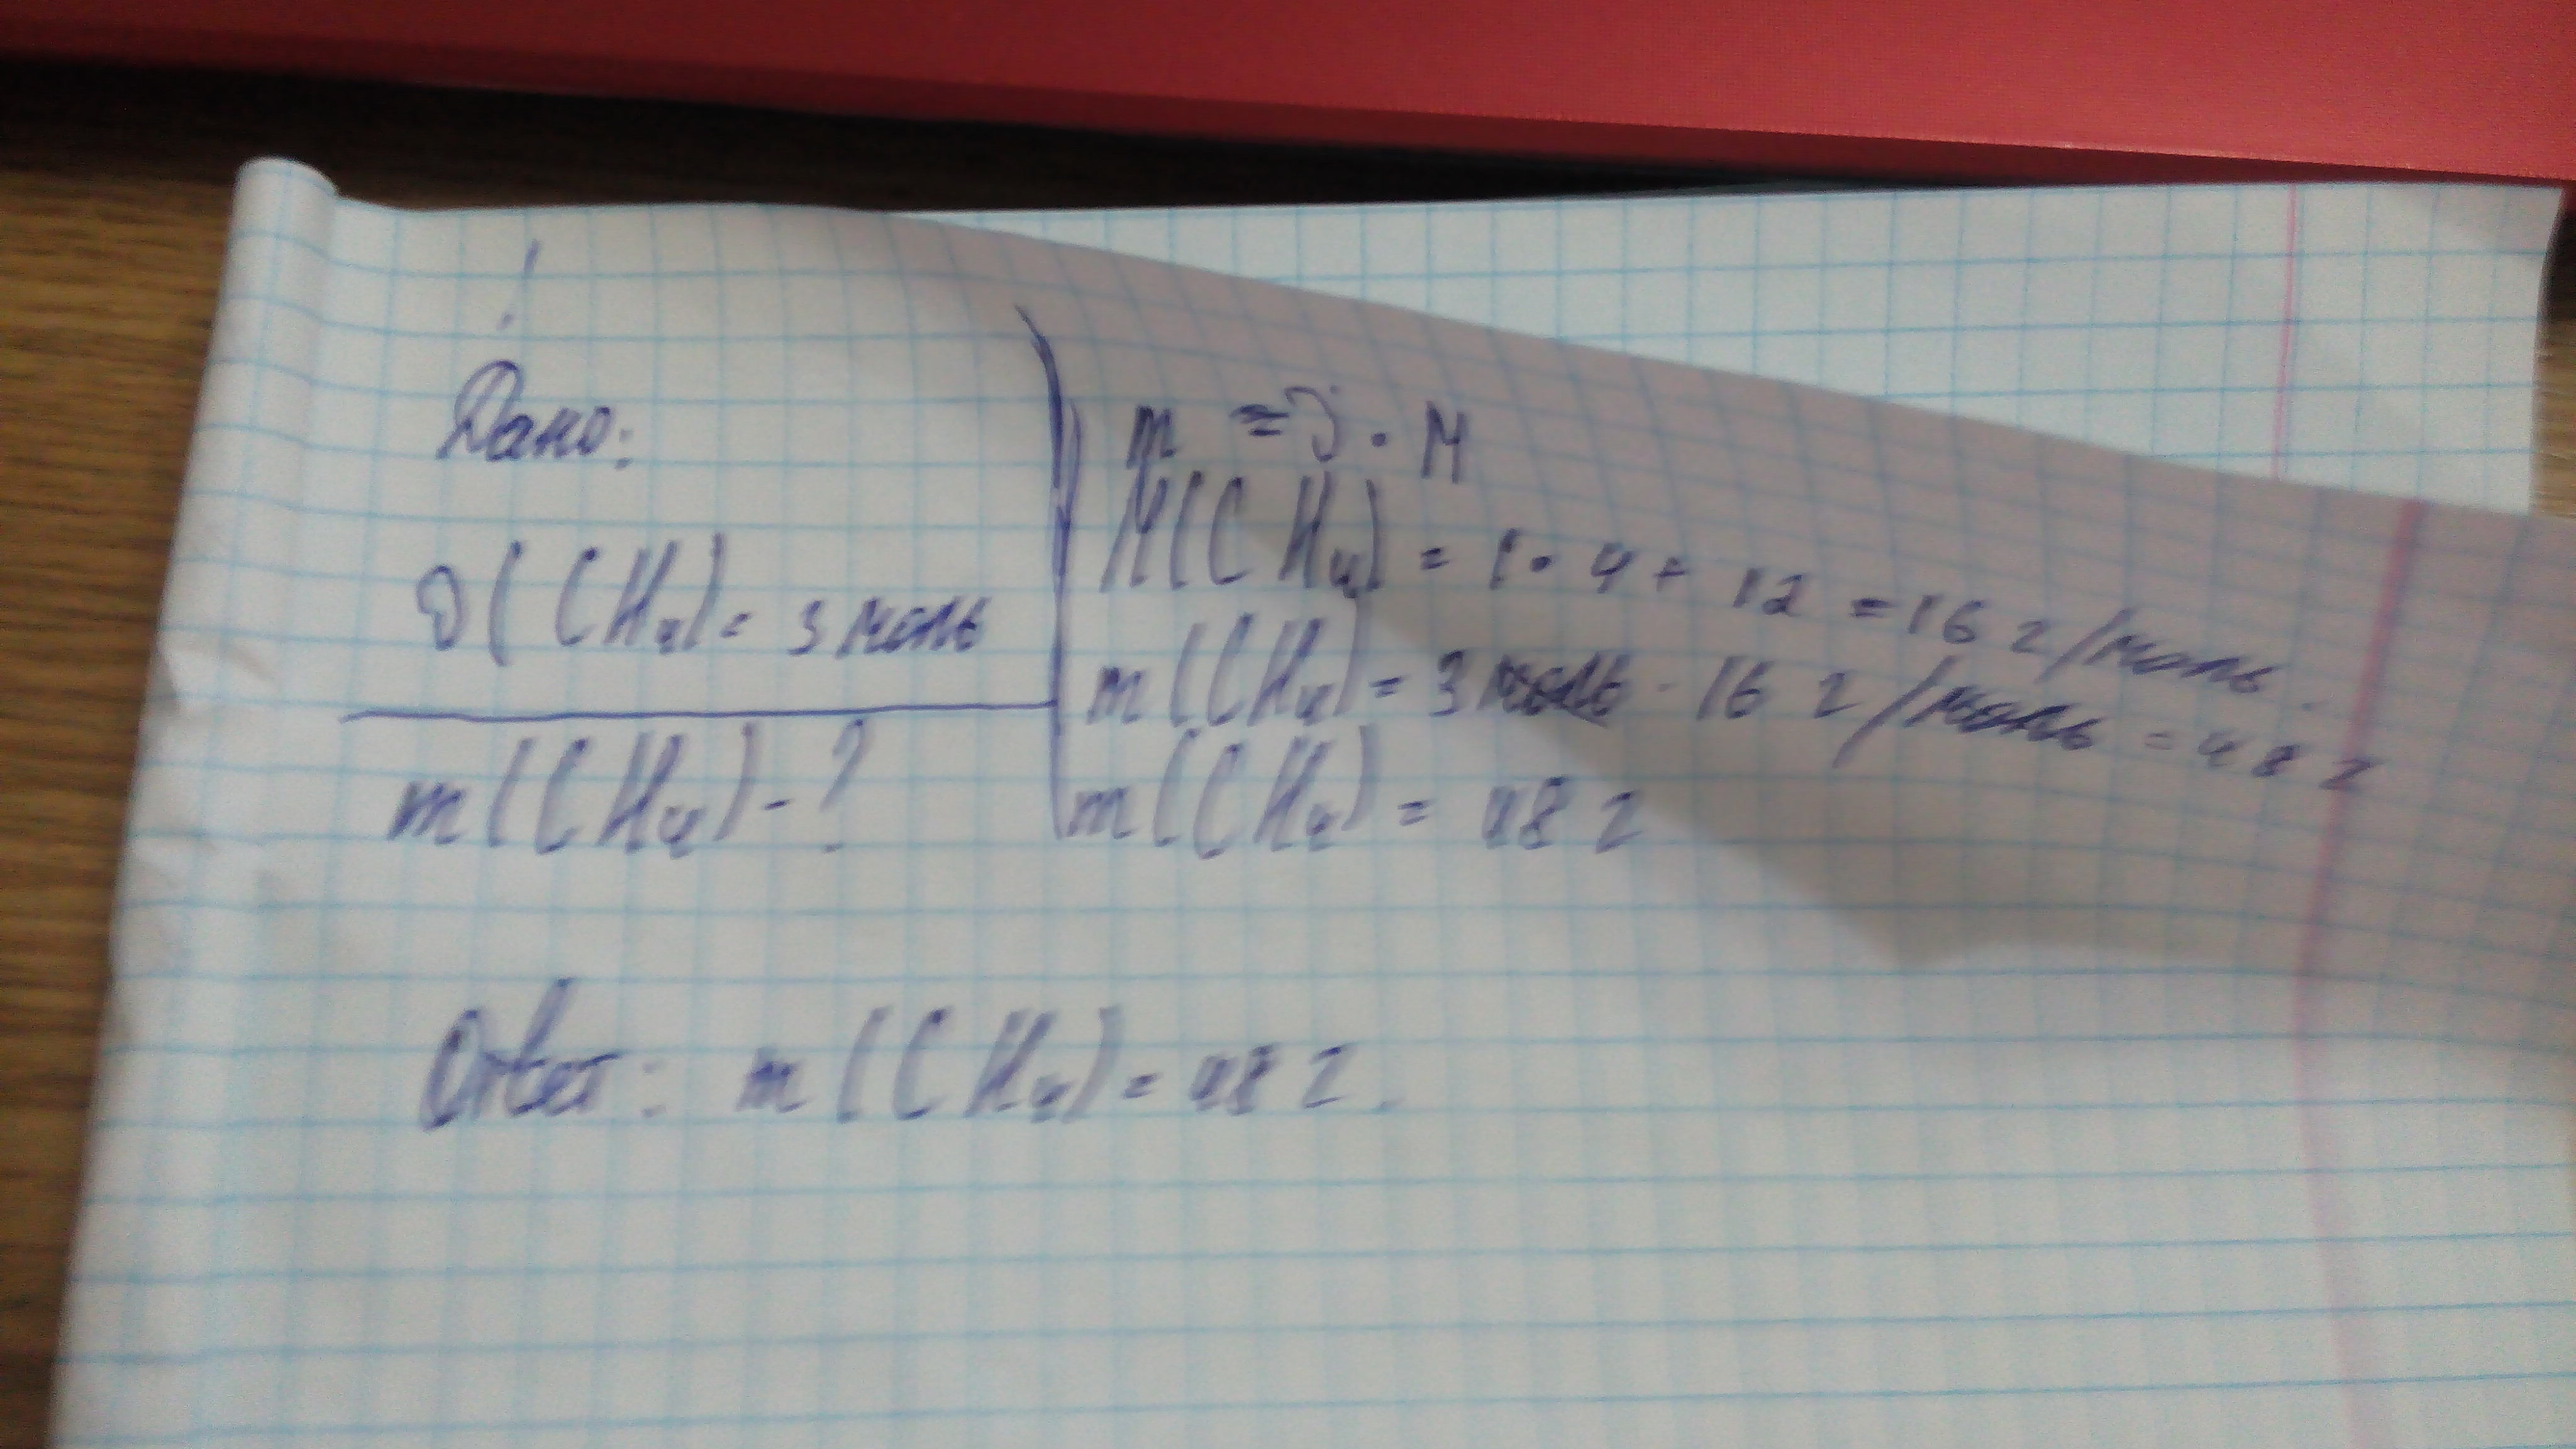 !
Дано:
υ(CH₄) = 3 моль
m(CH₄) - ?
m = υ · M
M(CH₄) = 1 · 4 + 12 = 16 г/моль.
m(CH₄) = 3 моль · 16 г/моль = 48 г
m(CH₄) = 48 г
Ответ: m(CH₄) = 48 г.